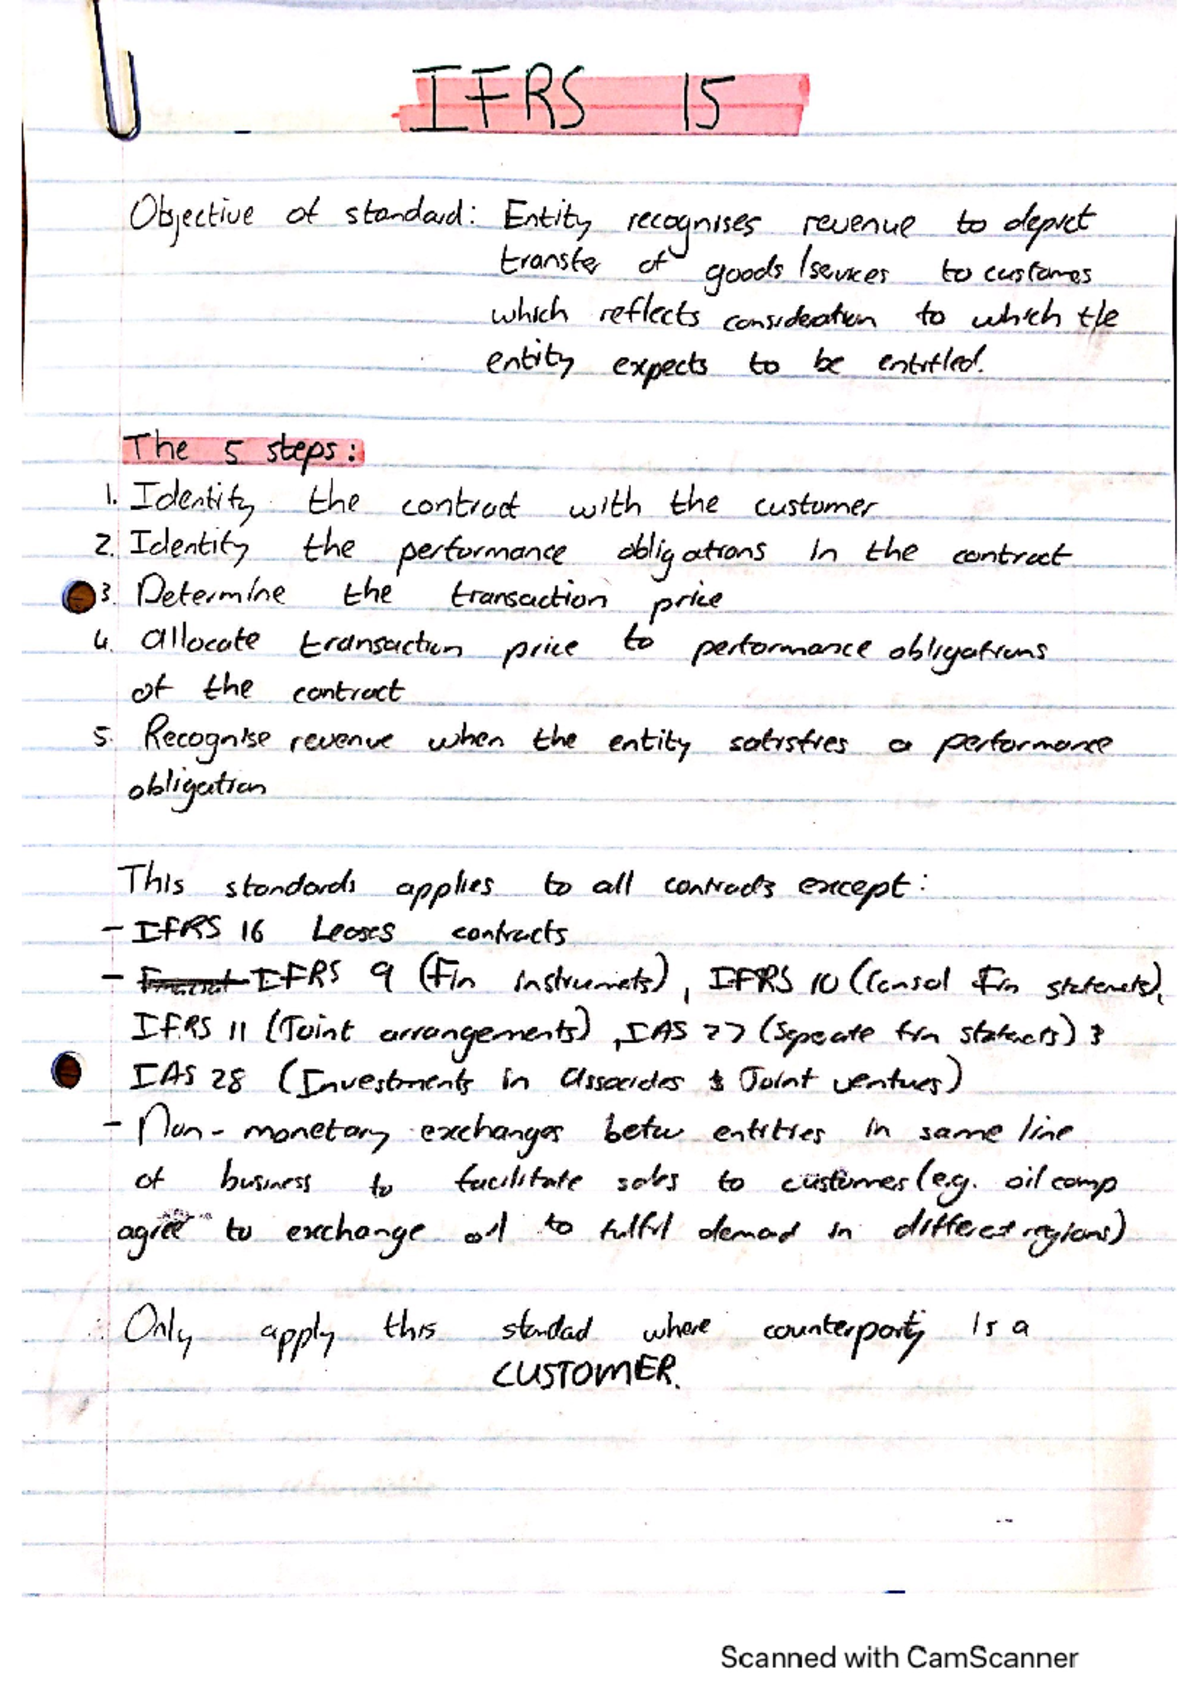 IFRS 15
Objective of standard: Entity recognises revenue to depict
transfer of goods/services to customers
which reflects consideration to which the
entity expects to be entitled.
The 5 steps:
1. Identify the contract with the customer
2. Identify the performance obligations in the contract
3. Determine the transaction price
4. allocate transaction price to performance obligations
of the contract
5. Recognise revenue when the entity satisfies a performance
obligation
This standards applies to all contracts except:
- IFRS 16 Leases contracts
- IFRS 9 (Fin instruments), IFRS 10 (Consol Fin statements),
IFRS 11 (Joint arrangements), IAS 27 (Seperate fin statements) &
IAS 28 (Investments in Associates & Joint ventures)
- Non-monetary exchanges betw entities in same line
of business to facilitate sales to customers (e.g. oil comp
agree to exchange oil to fulfil demand in different regions)
∴ Only apply this standard where counterparty is a
CUSTOMER.
Scanned with CamScanner